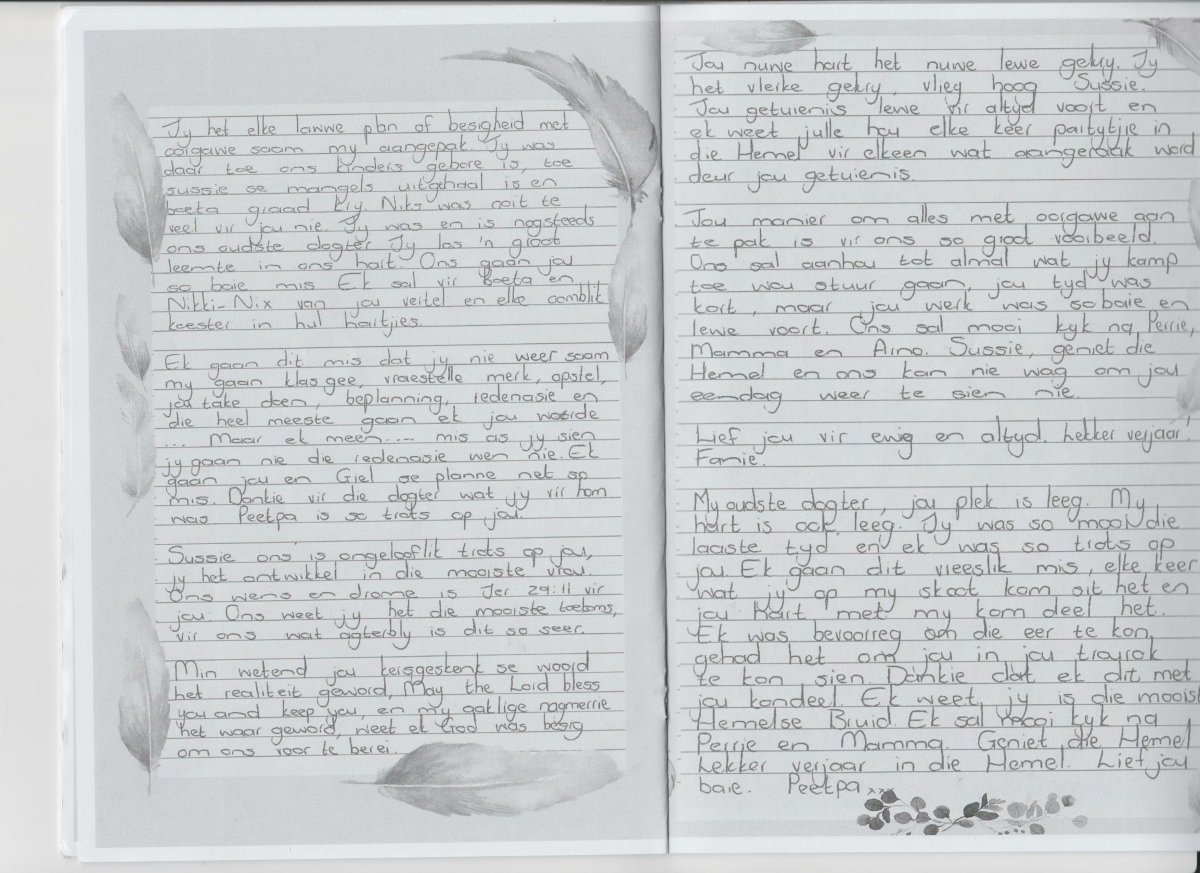 Jy het elke lawwe plan of besigheid met
oorgawe saam my aangepak. Jy was
daar toe ons kinders gebore is, toe
sussie se mangels uitgehaal is en
beeta graad kry. Niks was ooit te
veel vir jou nie. Jy was en is nogsteeds
ons oudste dogter. Jy los 'n groot
leemte in ons hart. Ons gaan jou
so baie mis. Ek sal vir Beeta en
Nikki-Nix van jou vertel en elke oomblik
koester in hul hartjies.
Ek gaan dit mis dat jy nie weer saam
my gaan klasgee, vraestelle merk, opstel,
jou take doen, beplanning, redenasie en
die heel meeste gaan ek jou woorde
... Maar ek meen.... mis as jy sien
jy gaan nie die redenasie wen nie. Ek
gaan jou en Giel se planne net so
mis. Dankie vir die dogter wat jy vir hom
was Peetpa is so trots op jou.
Sussie ons is ongelooflik trots op jou,
jy het ontwikkel in die mooiste vrou.
Ons wens en drome is Jer 29:11 vir
jou. Ons weet jy het die mooiste toekoms,
vir ons wat agterbly is dit so seer.
Min wetend jou kersgeskenk se woord
het realiteit geword, May the Lord bless
you and keep you, en my aaklige nagmerrie
het waar geword, weet ek God was besig
om ons voor te berei.
Jou nuwe hart het nuwe lewe gekry. Jy
het vlerke gekry, vlieg hoog Sussie.
Jou getuienis lewe vir altyd voort en
ek weet julle hou elke keer partytjie in
die Hemel vir elkeen wat aangeraak word
deur jou getuienis.
Jou manier om alles met oorgawe aan
te pak is vir ons so groot voorbeeld.
Ons sal aanhou tot almal wat jy kamp
toe wou stuur gaan, jou tyd was
kort, maar jou werk was so baie en
lewe voort. Ons sal mooi kyk na Perrie,
Mamma en Arno. Sussie, geniet die
Hemel en ons kan nie wag om jou
eendag weer te sien nie.
Lief jou vir ewig en altyd. Lekker verjaar!
Famie.
My oudste dogter, jou plek is leeg. My
hart is ook leeg. Jy was so mooi die
laaste tyd en ek was so trots op
jou. Ek gaan dit vreeslik mis, elke keer
wat jy op my skoot kom sit het en
jou hart met my kom deel het.
Ek was bevoorreg om die eer te kon
gehad het om jou in jou trourok
te kon sien. Dankie dat ek dit met
jou kondeel. Ek weet, jy is die moois
Hemelse Bruid. Ek sal mooi kyk na
Perrie en Mamma. Geniet die Hemel
Lekker verjaar in die Hemel. Lief jou
baie. Peetpa xxx